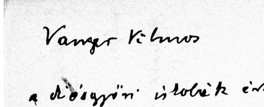 Vanger Vilmos
a diósgyőri iskolák